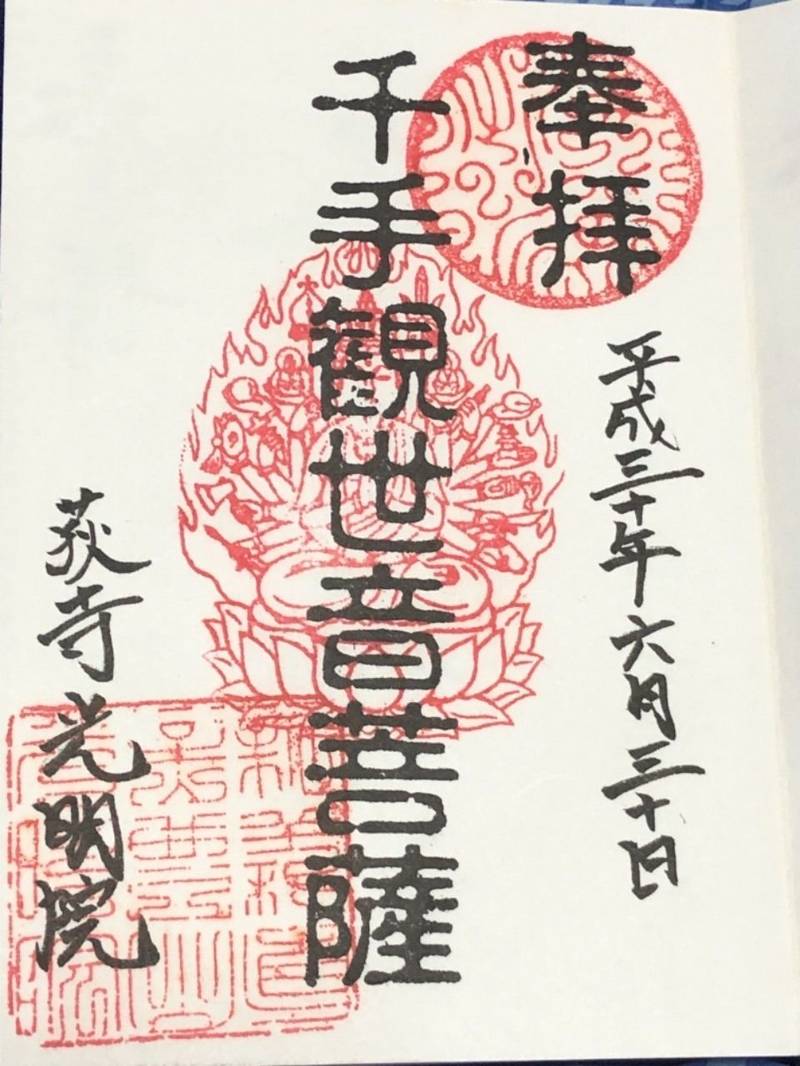 奉拝
平成三十年六月三十日
千手観世音菩薩
荻寺光明院